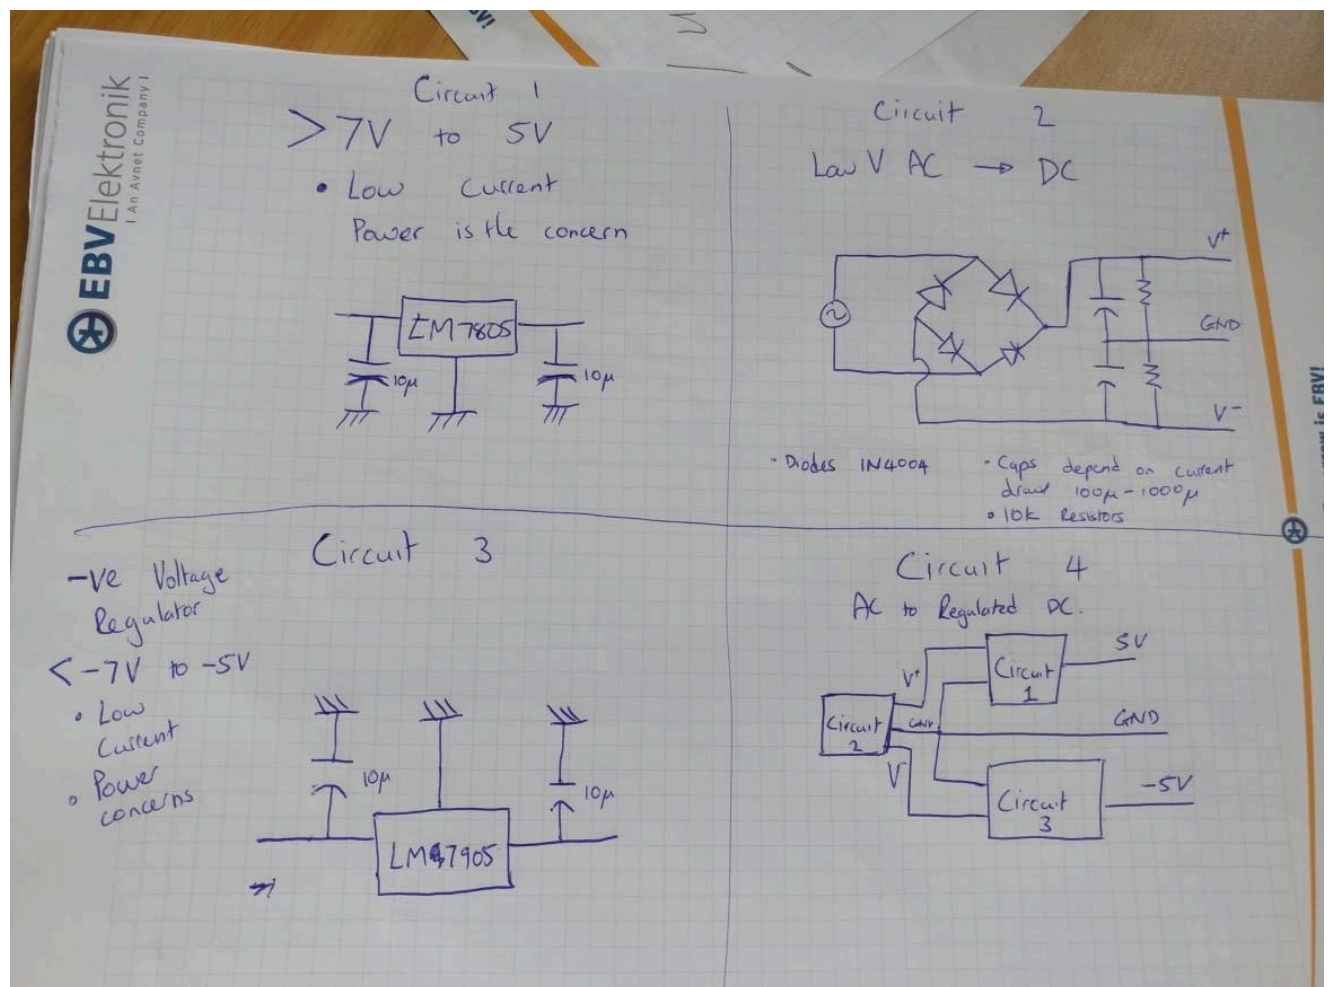 EBV!
EBVElektronik
I An Avnet Company I
Circuit 1
>7V to 5V
• Low Current
Power is the concern
LM7805
10µ
10µ
Circuit 2
Low V AC → DC
V+
GND
V-
- Diodes 1N4004
- Caps depend on current
draw 100µ-1000µ
• 10k Resistors
is EBV!
Circuit 3
-ve Voltage
Regulator
<-7V to -5V
• Low
Current
• Power
concerns
10µ
10µ
LM7905
Circuit 4
AC to Regulated DC.
Circuit
2
V+
GND
V-
Circuit
1
5V
GND
Circuit
3
-5V